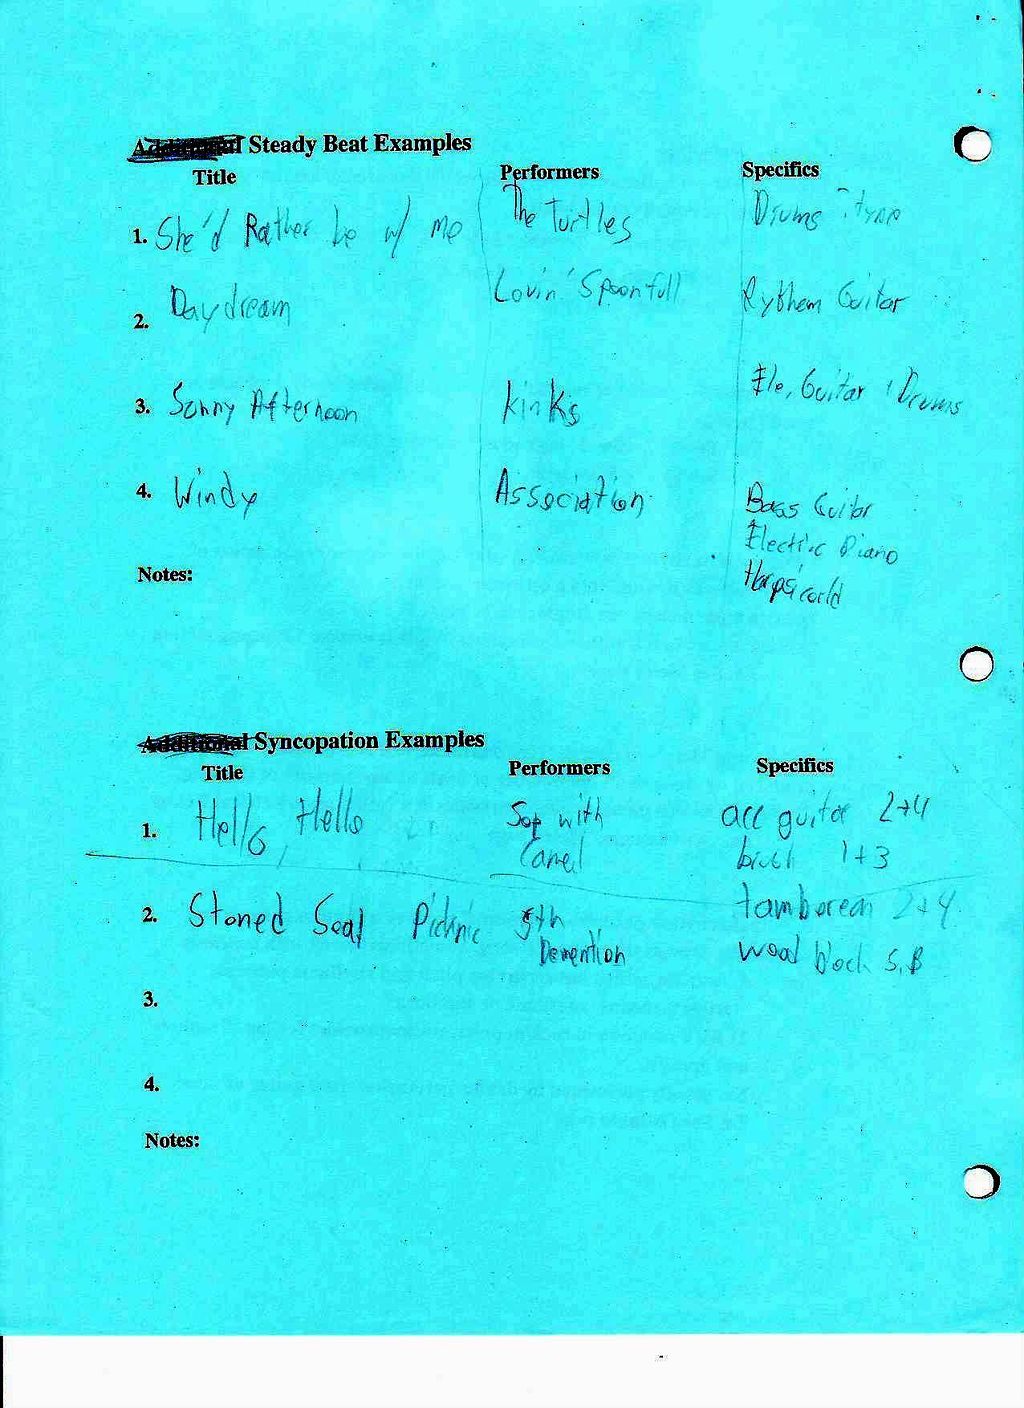 Additional Steady Beat Examples
Title Performers Specifics
1. She'd Rather be w/ me The Turtles Drums
2. Daydream Lovin' Spoonfull Rythem Guitar
3. Sunny Afternoon Kinks Ele. Guitar Drums
4. Windy Association Bass Guitar
Electric Piano
Harpsicorld
Notes:
Additional Syncopation Examples
Title Performers Specifics
1. Hello, Hello Sop with acc guitar 2+4
Camel 1+3
2. Stoned Soal Picknic 5th tamborean 2+4
Demention wood block S.B
3.
4.
Notes: